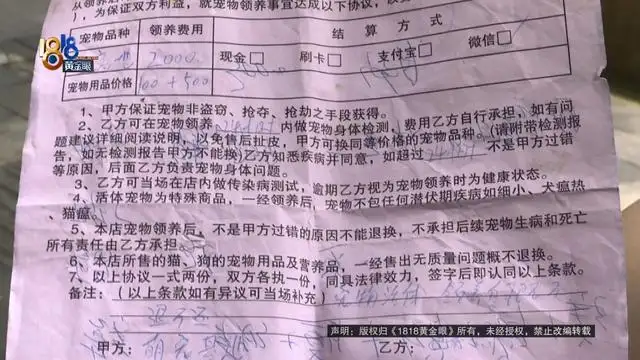 从领养
)，为保证双方利益，就宠物领养事宜达成以下协议，以
宠物品种 领养费用 结 算 方 式
2000 现金□ 刷卡□ 支付宝□ 微信□
宠物用品价格 100+500
1、甲方保证宠物非盗窃、抢夺、抢劫之手段获得。
2、乙方可在宠物领养 内做宠物身体检测，费用乙方自行承担，如有问
题建议详细阅读说明，以免售后扯皮，甲方可换同等价格的宠物品种。(请附带检测报
告，如无检测报告甲方不能换)乙方知悉疾病并同意，如超过 不是甲方过错
等原因，后面乙方负责宠物身体问题。
3、乙方可当场在店内做传染病测试，逾期乙方视为宠物领养时为健康状态。
4、活体宠物为特殊商品，一经领养后，宠物不包任何潜伏期疾病如细小、犬瘟热
、猫瘟。
5、本店宠物领养后，不是甲方过错的原因不能退换，不承担后续宠物生病和死亡
所有责任由乙方承担。
6、本店所售的猫、狗的宠物用品及营养品，一经售出无质量问题概不退换。
7、以上协议一式两份，双方各执一份，同具法律效力，签字后即认同以上条款。
备注：(以上条款如有异议可当场补充)
甲方： 乙方：
1818
黄金眼
声明：版权归《1818黄金眼》所有，未经授权，禁止改编转载